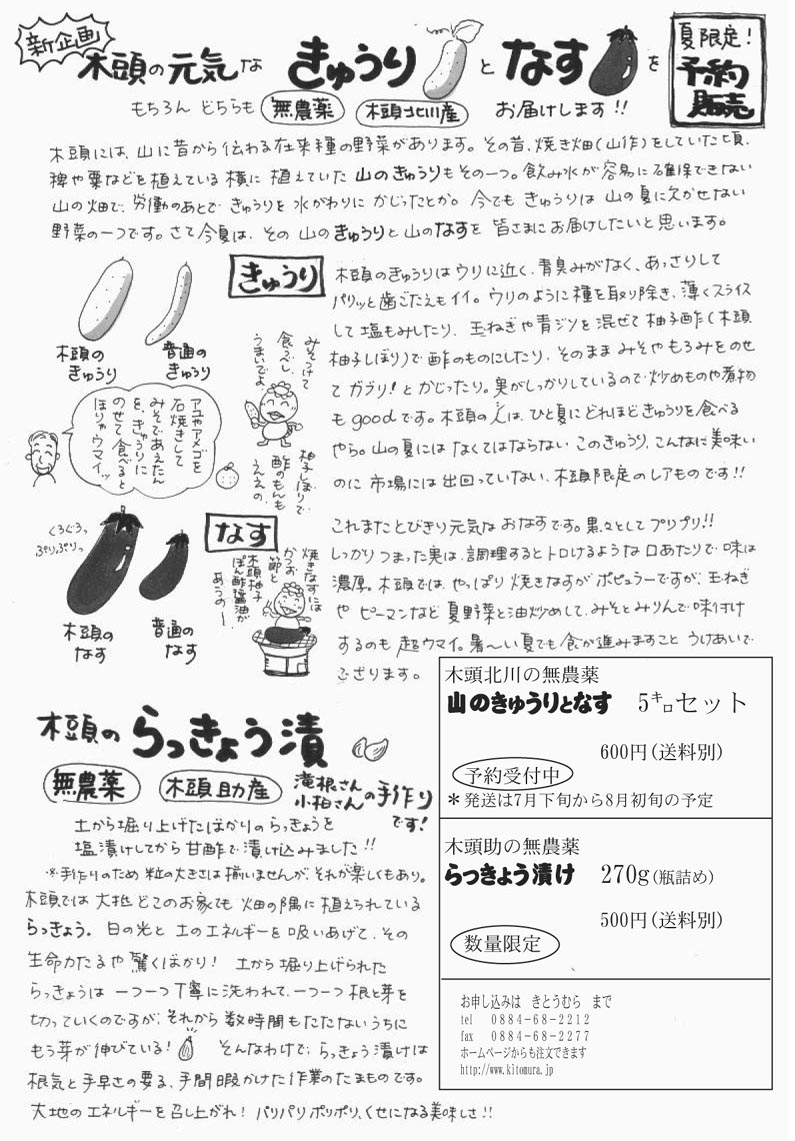 新企画
木頭の元気な きゅうり と なす を
夏限定!
予約
販売
もちろん どちらも 無農薬 木頭北川産 お届けします!!
木頭には、山に昔から伝わる在来種の野菜があります。その昔、焼き畑(山作)をしていた頃、
稗や粟などを植えている横に植えていた山のきゅうりもその一つ。飲み水が容易に確保できない
山の畑で、労働のあとできゅうりを水がわりにかじったとか。今でもきゅうりは山の夏に欠かせない
野菜の一つです。さて今夏は、その山のきゅうりと山のなすを皆さまにお届けしたいと思います。
きゅうり
木頭の
きゅうり
普通の
きゅうり
みそつけて
食うべし
うまいでよ、
アユやアメゴを
石焼きして
みそであえたん
を、きゅうりに
のせて食べると
ほりゃウマイッ
柚子しぼりで
酢のもんも
ええの、
木頭のきゅうりはウリに近く、青臭みがなく、あっさりして
パリッと歯ごたえもイイ。ウリのように種を取り除き、薄くスライス
して塩もみしたり、玉ねぎや青ジソを混ぜて柚子酢(木頭
柚子しぼり)で酢のものにしたり、そのままみそやもろみをのせ
てガブリ!とかじったり。実がしっかりしているので炒めものや煮物
もgoodです。木頭の人は、ひと夏にどれほどきゅうりを食べる
やら。山の夏にはなくてはならないこのきゅうり、こんなに美味い
のに市場には出回っていない、木頭限定のレアものです!!
なす
くろぐろっ
ぷりっぷりっ
木頭の
なす
普通の
なす
焼きなすには
かつお節と
木頭柚子
ぽん酢醤油が
あうのー、
これまたとびきり元気なおなすです。黒々としてプリプリ!!
しっかりつまった実は、調理するとトロけるような口あたりで味は
濃厚。木頭では、やっぱり焼きなすがポピュラーですが、玉ねぎ
やピーマンなど夏野菜と油炒めして、みそとみりんで味付け
するのも超ウマイ。暑〜い夏でも食が進みますことうけあいで
ございます。
木頭の らっきょう漬
無農薬 木頭助産 滝根さん
小柏さんの手作り
です!
土から掘り上げたばかりのらっきょうを
塩漬けしてから甘酢で漬け込みました!!
※手作りのため粒の大きさは揃いませんが、それが楽しくもあり。
木頭では大抵どこのお家でも畑の隅に植えられている
らっきょう。日の光と土のエネルギーを吸いあげて、その
生命力たるや驚くばかり! 土から掘り上げられた
らっきょうは一つ一つ丁寧に洗われて、一つ一つ根と芽を
切っていくのですが、それから数時間もたたないうちに
もう芽が伸びている! そんなわけで、らっきょう漬けは
根気と手早さの要る、手間暇かけた作業のたまものです。
大地のエネルギーを召し上がれ!パリパリポリポリ、くせになる美味しさ!!
木頭北川の無農薬
山のきゅうりとなす 5㌔セット
600円(送料別)
予約受付中
*発送は7月下旬から8月初旬の予定
木頭助の無農薬
らっきょう漬け 270g(瓶詰め)
500円(送料別)
数量限定
お申し込みは きとうむら まで
tel 0884-68-2212
fax 0884-68-2277
ホームページからも注文できます
http://www.kitomura.jp